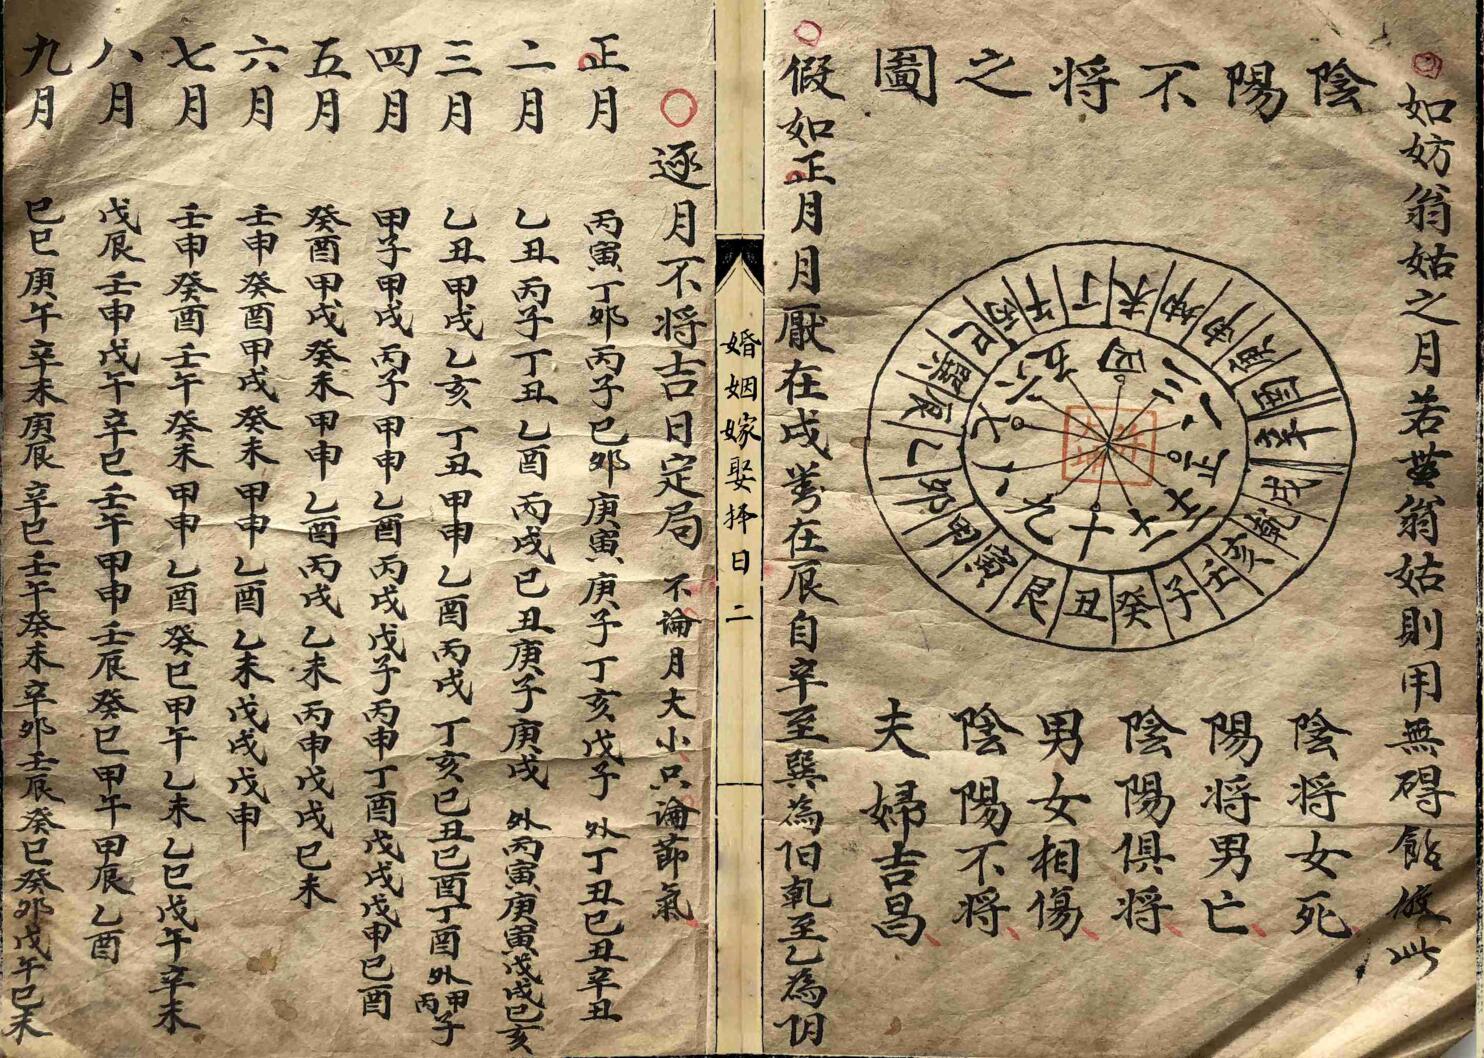 如妨翁姑之月若無翁姑則用無碍餘倣此
陰陽不将之圖
丁未坤申庚酉辛戌乾亥壬子癸丑艮寅甲卯乙辰巽巳丙午
正二三四五六七八九十
陰将女死
陽将男亡
陰陽俱将
男女相傷
陰陽不将
夫婦吉昌
假如正月月厭在戌對在辰自辛至巽為阳乾至乙為阴
婚姻嫁娶择日二
逐月不将吉日定局 不論月大小只論節氣
正月 丙寅丁卯丙子己卯庚寅庚子丁亥戊子 外丁丑己丑辛丑
二月 乙丑丙子丁丑乙酉丙戌己丑庚子庚戌 外丙寅庚寅戊戌己亥
三月 乙丑甲戌乙亥丁丑甲申乙酉丙戌丁亥己丑己酉丁酉外甲子丙
四月 甲子甲戌丙子甲申乙酉丙戌戊子丙申丁酉戊戌戊申己酉
五月 癸酉甲戌癸未甲申乙酉丙戌乙未丙申戊戌己未
六月 壬申癸酉甲戌癸未甲申乙酉乙未戊戌戊申
七月 壬申癸酉壬午癸未甲申乙酉癸巳甲午乙未乙巳戊午辛未
八月 戊辰壬申戊午辛巳壬午甲申壬辰癸巳甲午甲辰乙酉
九月 己巳庚午辛未庚辰辛巳壬午癸未辛卯壬辰癸巳癸卯戊午己未